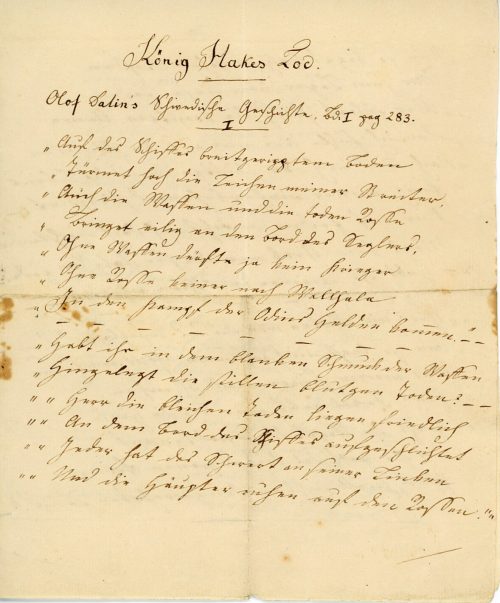 König Hakes Tod.
Olof Dalin's Schwedische Geschichte. Bd. I pag 283.
I
„Auf des Schiffes breitgeripptem Boden
„Türmet hoch die Leichen meiner Streiter,
„Auch die Waffen und die toden Rosse
„Bringet eilig an den Bord des Seglers,
„Ohne Waffen dürfte ja kein Krieger
„Ohne Rosse keiner nach Wallhala
„In den Kampf der Odins Helden kommen." –
– – – – – – –
„Habt ihr in dem blanken Schmuck der Waffen
„Hingelegt die stillen blutgen Toden? –
„„Herr die bleichen Toden liegen friedlich
„„An dem Bord des Schiffes aufgeschichtet
„„Jeder hat das Schwert an seiner Linken
„„Und die Häupter ruhen auf den Rossen."„